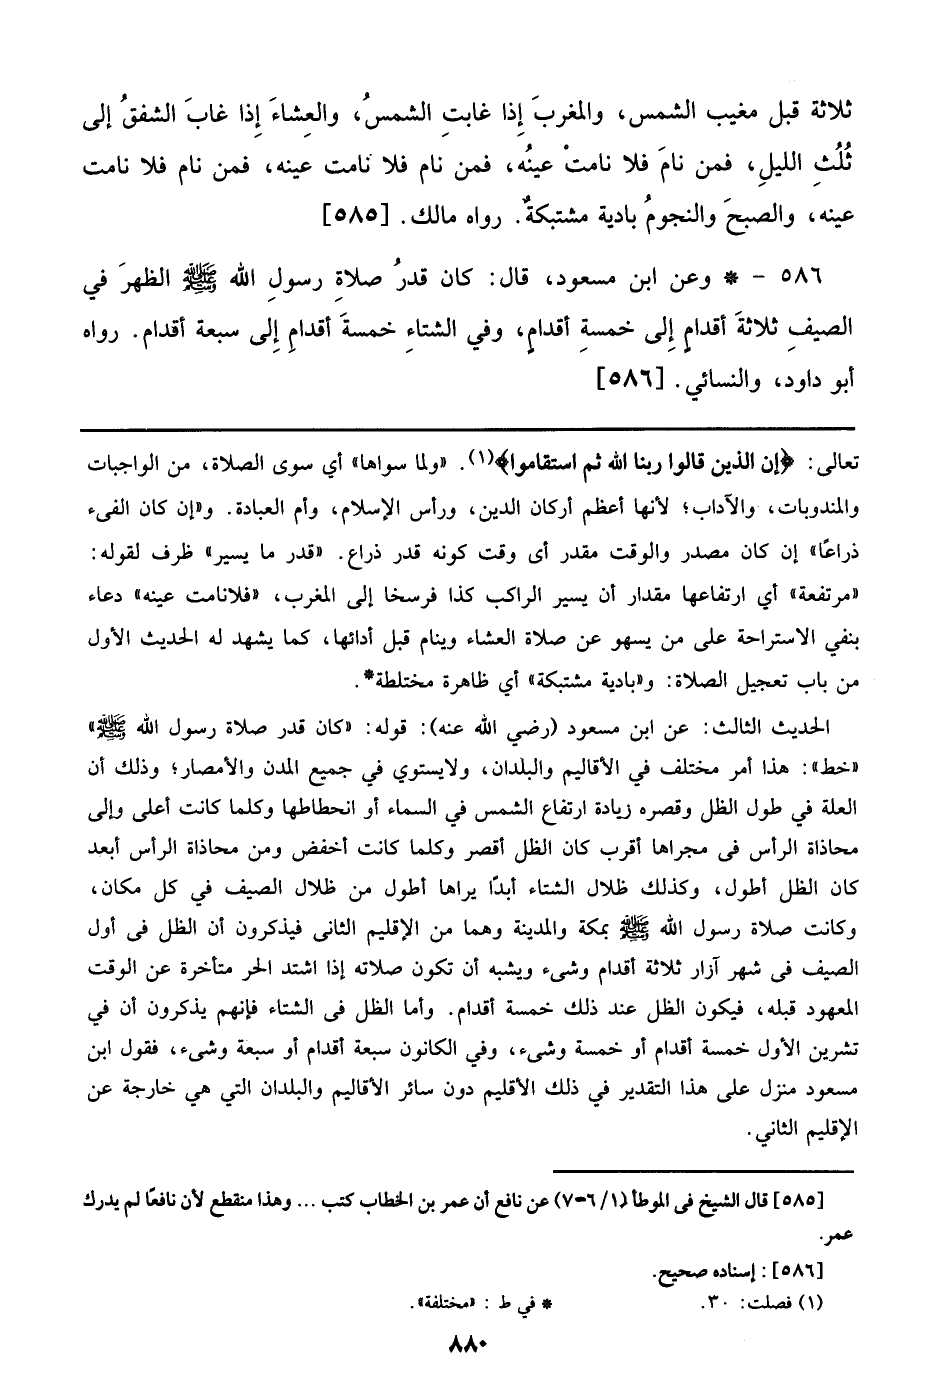 ثلاثة قبل مغيب الشمس، والمغربَ إذا غابتِ الشمسُ، والعِشاءَ إذا غابَ الشفقُ إلى
ثُلُثِ الليلِ، فمن نامَ فلا نامتْ عينُه، فمن نام فلا نامت عينه، فمن نام فلا نامت
عينه، والصبحَ والنجومُ بادية مشتبكةٌ. رواه مالك. [٥٨٥]
٥٨٦ – * وعن ابن مسعود، قال: كان قدرُ صلاةِ رسولِ الله ﷺ الظهرَ في
الصيفِ ثلاثةَ أقدامٍ إلى خمسةِ أقدامٍ، وفي الشتاءِ خمسةَ أقدامِ إلى سبعة أقدام. رواه
أبو داود، والنسائي. [٥٨٦]
تعالى: ﴿إن الذين قالوا ربنا الله ثم استقاموا﴾(١). «ولما سواها» أي سوى الصلاة، من الواجبات
والمندوبات، والآداب؛ لأنها أعظم أركان الدين، ورأس الإسلام، وأم العبادة. و«إن كان الفىء
ذراعًا» إن كان مصدر والوقت مقدر أى وقت كونه قدر ذراع. «قدر ما يسير» ظرف لقوله:
«مرتفعة» أي ارتفاعها مقدار أن يسير الراكب كذا فرسخا إلى المغرب، «فلانامت عينه» دعاء
بنفي الاستراحة على من يسهو عن صلاة العشاء وينام قبل أدائها، كما يشهد له الحديث الأول
من باب تعجيل الصلاة: و«بادية مشتبكة» أي ظاهرة مختلطة*.
الحديث الثالث: عن ابن مسعود (رضي الله عنه): قوله: «كان قدر صلاة رسول الله ﷺ»
«خط»: هذا أمر مختلف في الأقاليم والبلدان، ولايستوي في جميع المدن والأمصار؛ وذلك أن
العلة في طول الظل وقصره زيادة ارتفاع الشمس في السماء أو انحطاطها وكلما كانت أعلى وإلى
محاذاة الرأس فى مجراها أقرب كان الظل أقصر وكلما كانت أخفض ومن محاذاة الرأس أبعد
كان الظل أطول، وكذلك ظلال الشتاء أبدًا يراها أطول من ظلال الصيف في كل مكان،
وكانت صلاة رسول الله ﷺ بمكة والمدينة وهما من الإقليم الثانى فيذكرون أن الظل فى أول
الصيف فى شهر آزار ثلاثة أقدام وشىء ويشبه أن تكون صلاته إذا اشتد الحر متأخرة عن الوقت
المعهود قبله، فيكون الظل عند ذلك خمسة أقدام. وأما الظل فى الشتاء فإنهم يذكرون أن في
تشرين الأول خمسة أقدام أو خمسة وشىء، وفي الكانون سبعة أقدام أو سبعة وشىء، فقول ابن
مسعود منزل على هذا التقدير في ذلك الأقليم دون سائر الأقاليم والبلدان التي هي خارجة عن
الإقليم الثاني.
[٥٨٥] قال الشيخ فى الموطأ (٦/١-٧) عن نافع أن عمر بن الخطاب كتب ... وهذا منقطع لأن نافعًا لم يدرك
عمر.
[٥٨٦]: إسناده صحيح.
(١) فصلت: ٣٠. * في ط : «مختلفة».
٨٨٠